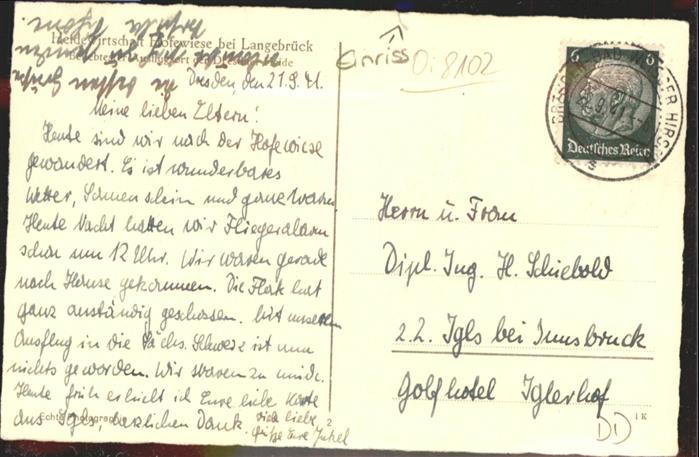 Heidewirtschaft Hofewiese bei Langebrück
Dresden, den 21.9.41.
Meine lieben Eltern!
Heute sind wir nach der Hofewiese
gewandert. Es ist wunderbares
Wetter, Sonnenschein und ganz warm.
Heute Nacht hatten wir Fliegeralarm
schon um 12 Uhr. Wir waren gerade
nach Hause gekommen. Die Flak hat
ganz anständig geschossen. Mit unserem
Ausflug in die Sächs. Schweiz ist nun
nichts geworden. Wir waren zu müde.
Heute früh erhielt ich Eure liebe Karte
aus Igls, herzlichen Dank. Viele liebe
Grüße Eure
Einriss
Oi 8102
6 6
Deutsches Reich
Herrn u. Frau
Dipl. Ing. H. Schiebold
z.Z. Igls bei Innsbruck
Golfhotel Iglerhof
1K
DD